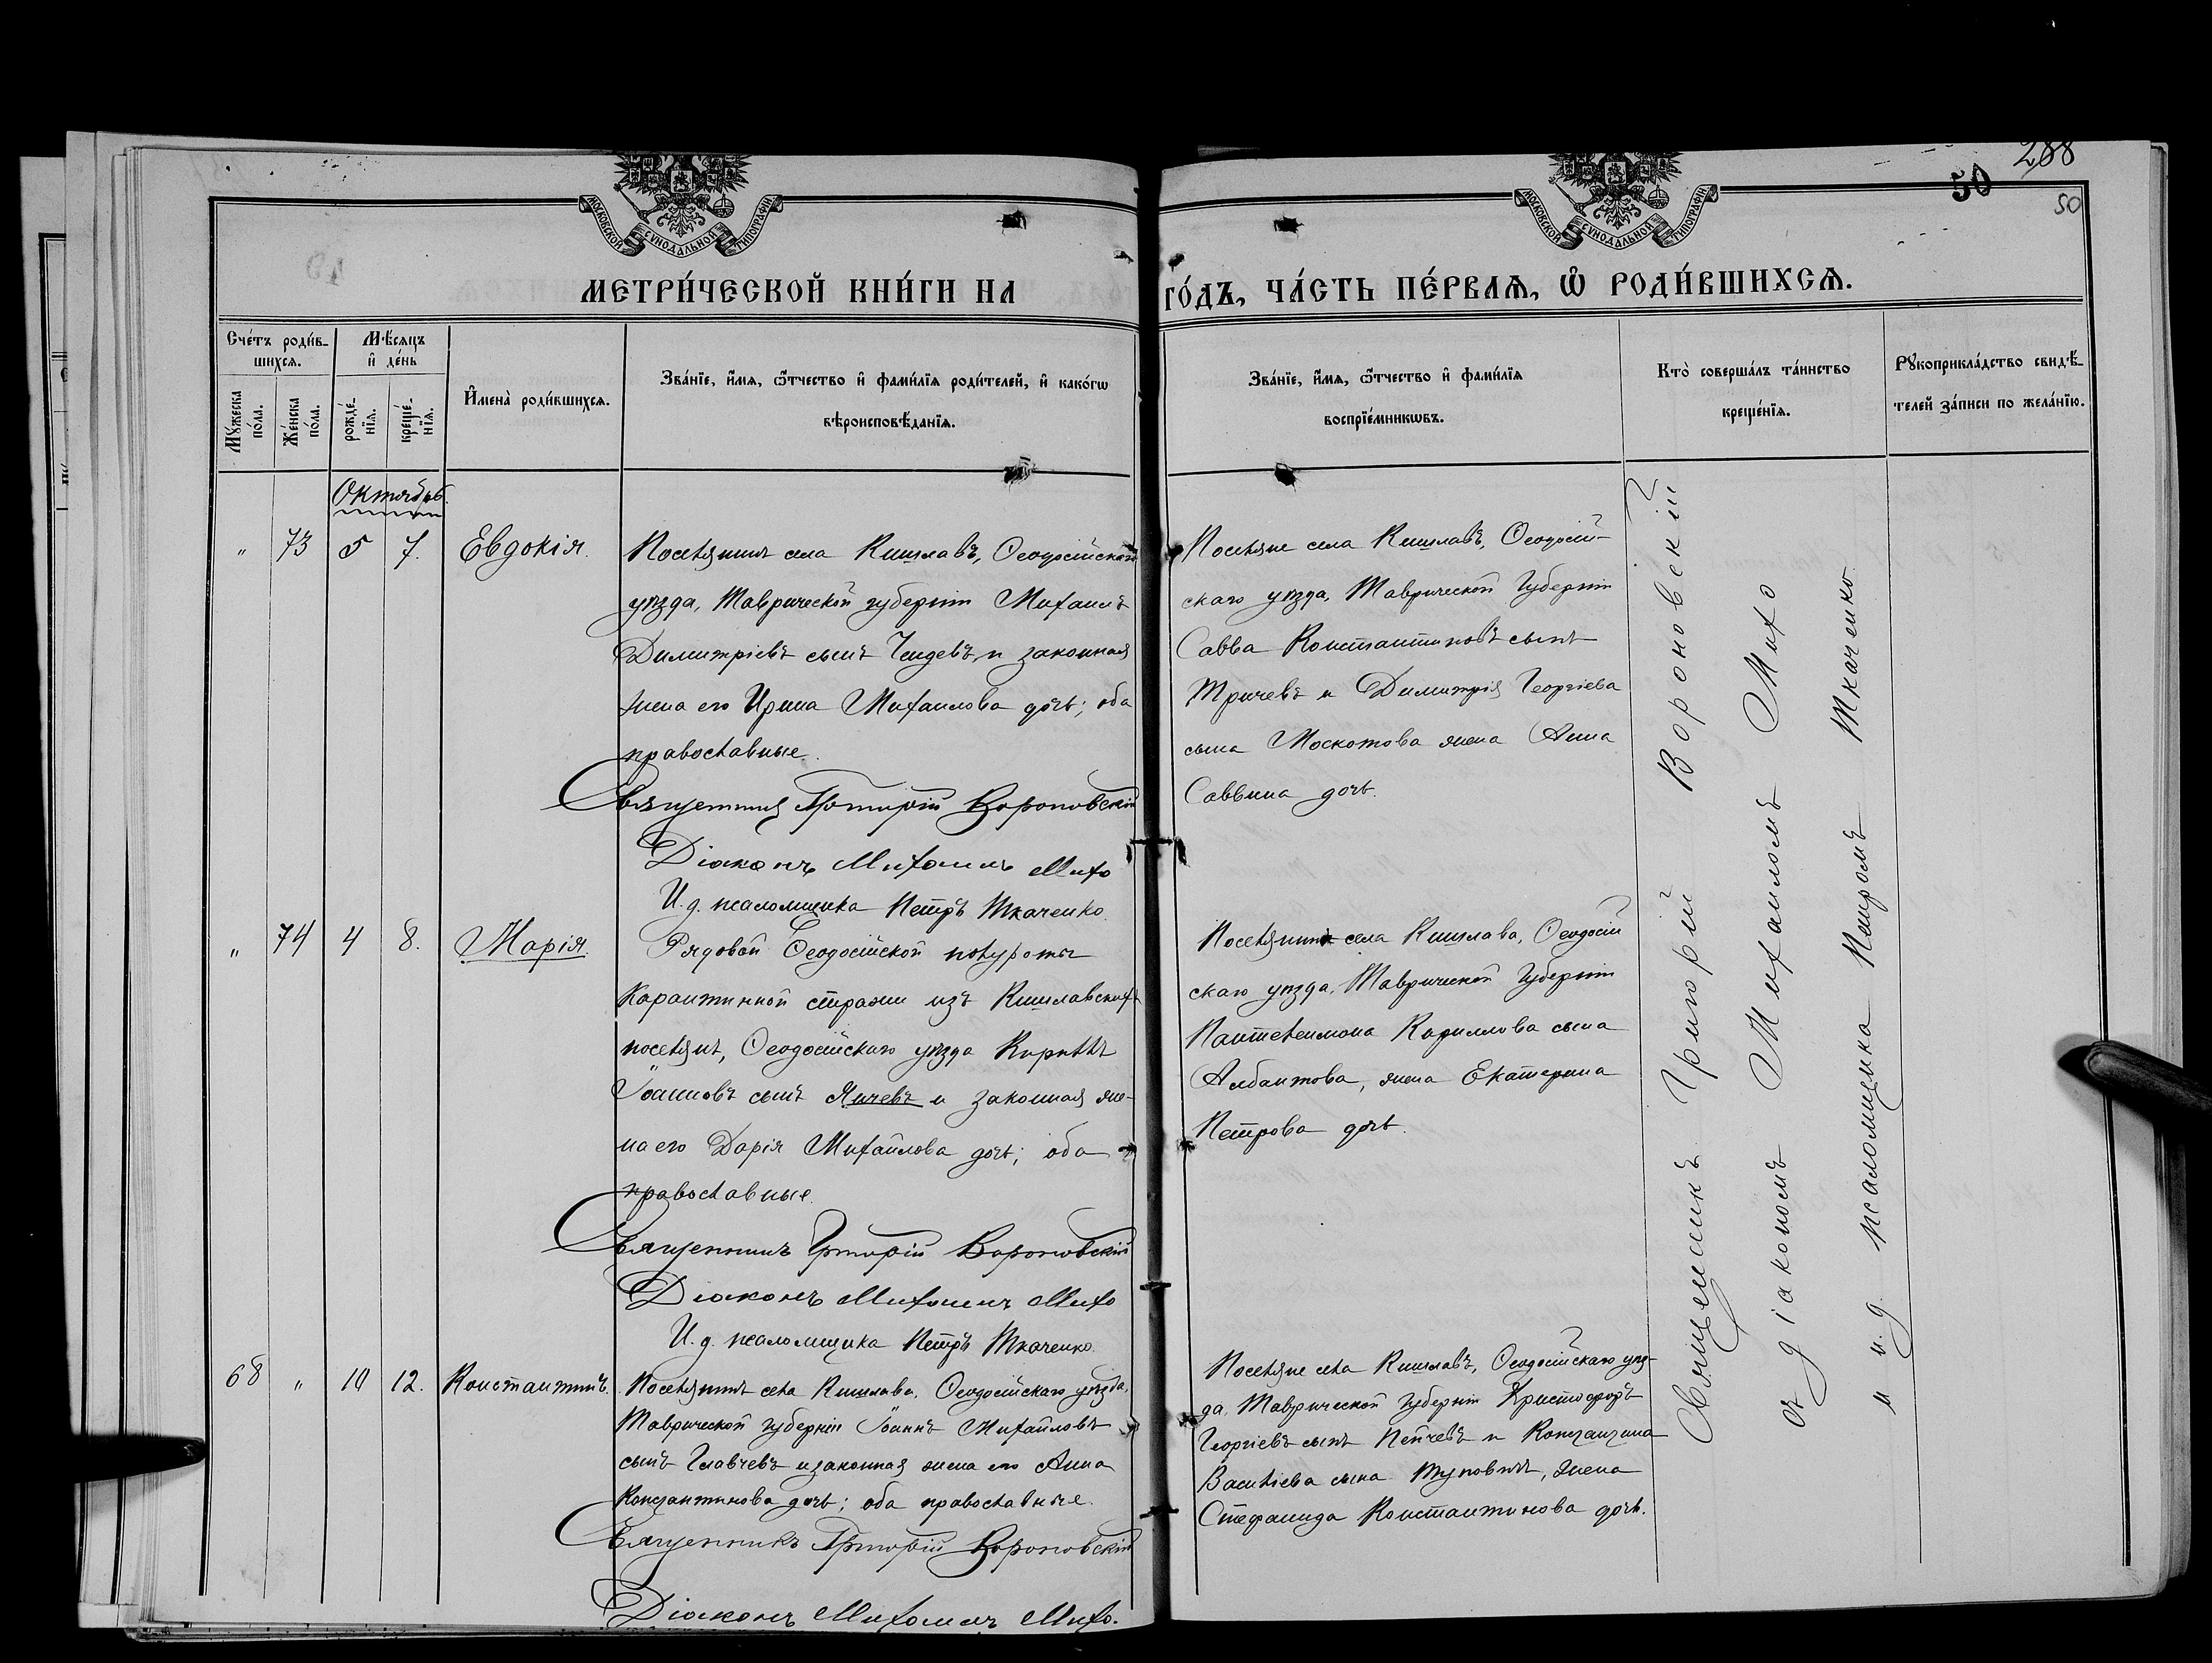 288
50
50
МОСКОВСКОЙ СѴНОДАЛЬНОЙ ТИПОГРАФІИ
МОСКОВСКОЙ СѴНОДАЛЬНОЙ ТИПОГРАФІИ
МЕТРИ́ЧЕСКОЙ КНИ́ГИ НА
ГО́ДЪ, ЧА́СТЬ ПЕ́РВАѦ, Ѽ РОДИ́ВШИХСѦ.
Сче́тъ роди́в-
шихсѧ.
Мꙋ́жеска по́ла.
Же́нска по́ла.
Мѣ́сяцъ
и҆ де́нь
рожде́-
нїѧ.
креще́-
нїѧ.
И҆мена̀ роди́вшихсѧ.
Зва́нїе, и҆́мѧ, ѻ҆́тчество и҆ фами́лїѧ роди́телей, и҆ како́гѡ
вѣроисповѣ́данїѧ.
Зва́нїе, и҆́мѧ, ѻ҆́тчество и҆ фами́лїѧ
воспрїе́мникѡвъ.
Кто̀ соверша́лъ та́инство
креще́нїѧ.
Рꙋкоприкла́дство свидѣ́-
телей за́писи по жела́нїю.
Октябрь.
" 73 5 7. Евдокія.
Поселянинъ села Кишлавъ, Ѳеодосійскаго
уѣзда, Таврической губерніи Михаилъ
Димитріевъ сынъ и законная
жена его Ирина Михаилова дочь; оба
православные.
Священникъ Григорій Вороновскій
Діаконъ Михаилъ Михо
И. д. псаломщика Петръ Ткаченко.
Поселяне села Кишлавъ, Ѳеодосій-
скаго уѣзда, Таврической губерніи
Савва Константиновъ сынъ
Тричевъ и Димитрія Георгіева
сына Москотова жена Анна
Саввина дочь.
" 74 4 8. Марія.
Рядовой Ѳеодосійской полуроты
Карантинной стражи изъ Кишлавскихъ
поселянъ, Ѳеодосійскаго уѣзда Кириллъ
Іоанновъ сынъ Яичевъ и законная же-
на его Дарія Михайлова дочь; оба
православные.
Священникъ Григорій Вороновскій
Діаконъ Михаилъ Михо
И. д. псаломщика Петръ Ткаченко.
села Кишлава, Ѳеодосій
скаго уѣзда, Таврической губерніи
Пантелеимона Кириллова сына
Албантова, жена Екатерина
Петрова дочь.
68 " 10 12. Константинъ.
Поселянинъ села Кишлава, Ѳеодосійскаго уѣзда,
Таврической губерніи Іоаннъ Михайловъ
сынъ Главчевъ и законная жена его Анна
Константинова дочь; оба православные.
Священникъ Григорій Вороновскій
Діаконъ Михаилъ Михо.
Поселяне села Кишлавъ, Ѳеодосійскаго уѣз-
да, Таврической губерніи Христофоръ
Георгіевъ сынъ Пейчевъ и Константина
Василіева сына жена
Стефанида Константинова дочь.
Священникъ Григорій Вороновскій
съ діакономъ Михаиломъ Михо
и и. д. псаломщика Петромъ Ткаченко.